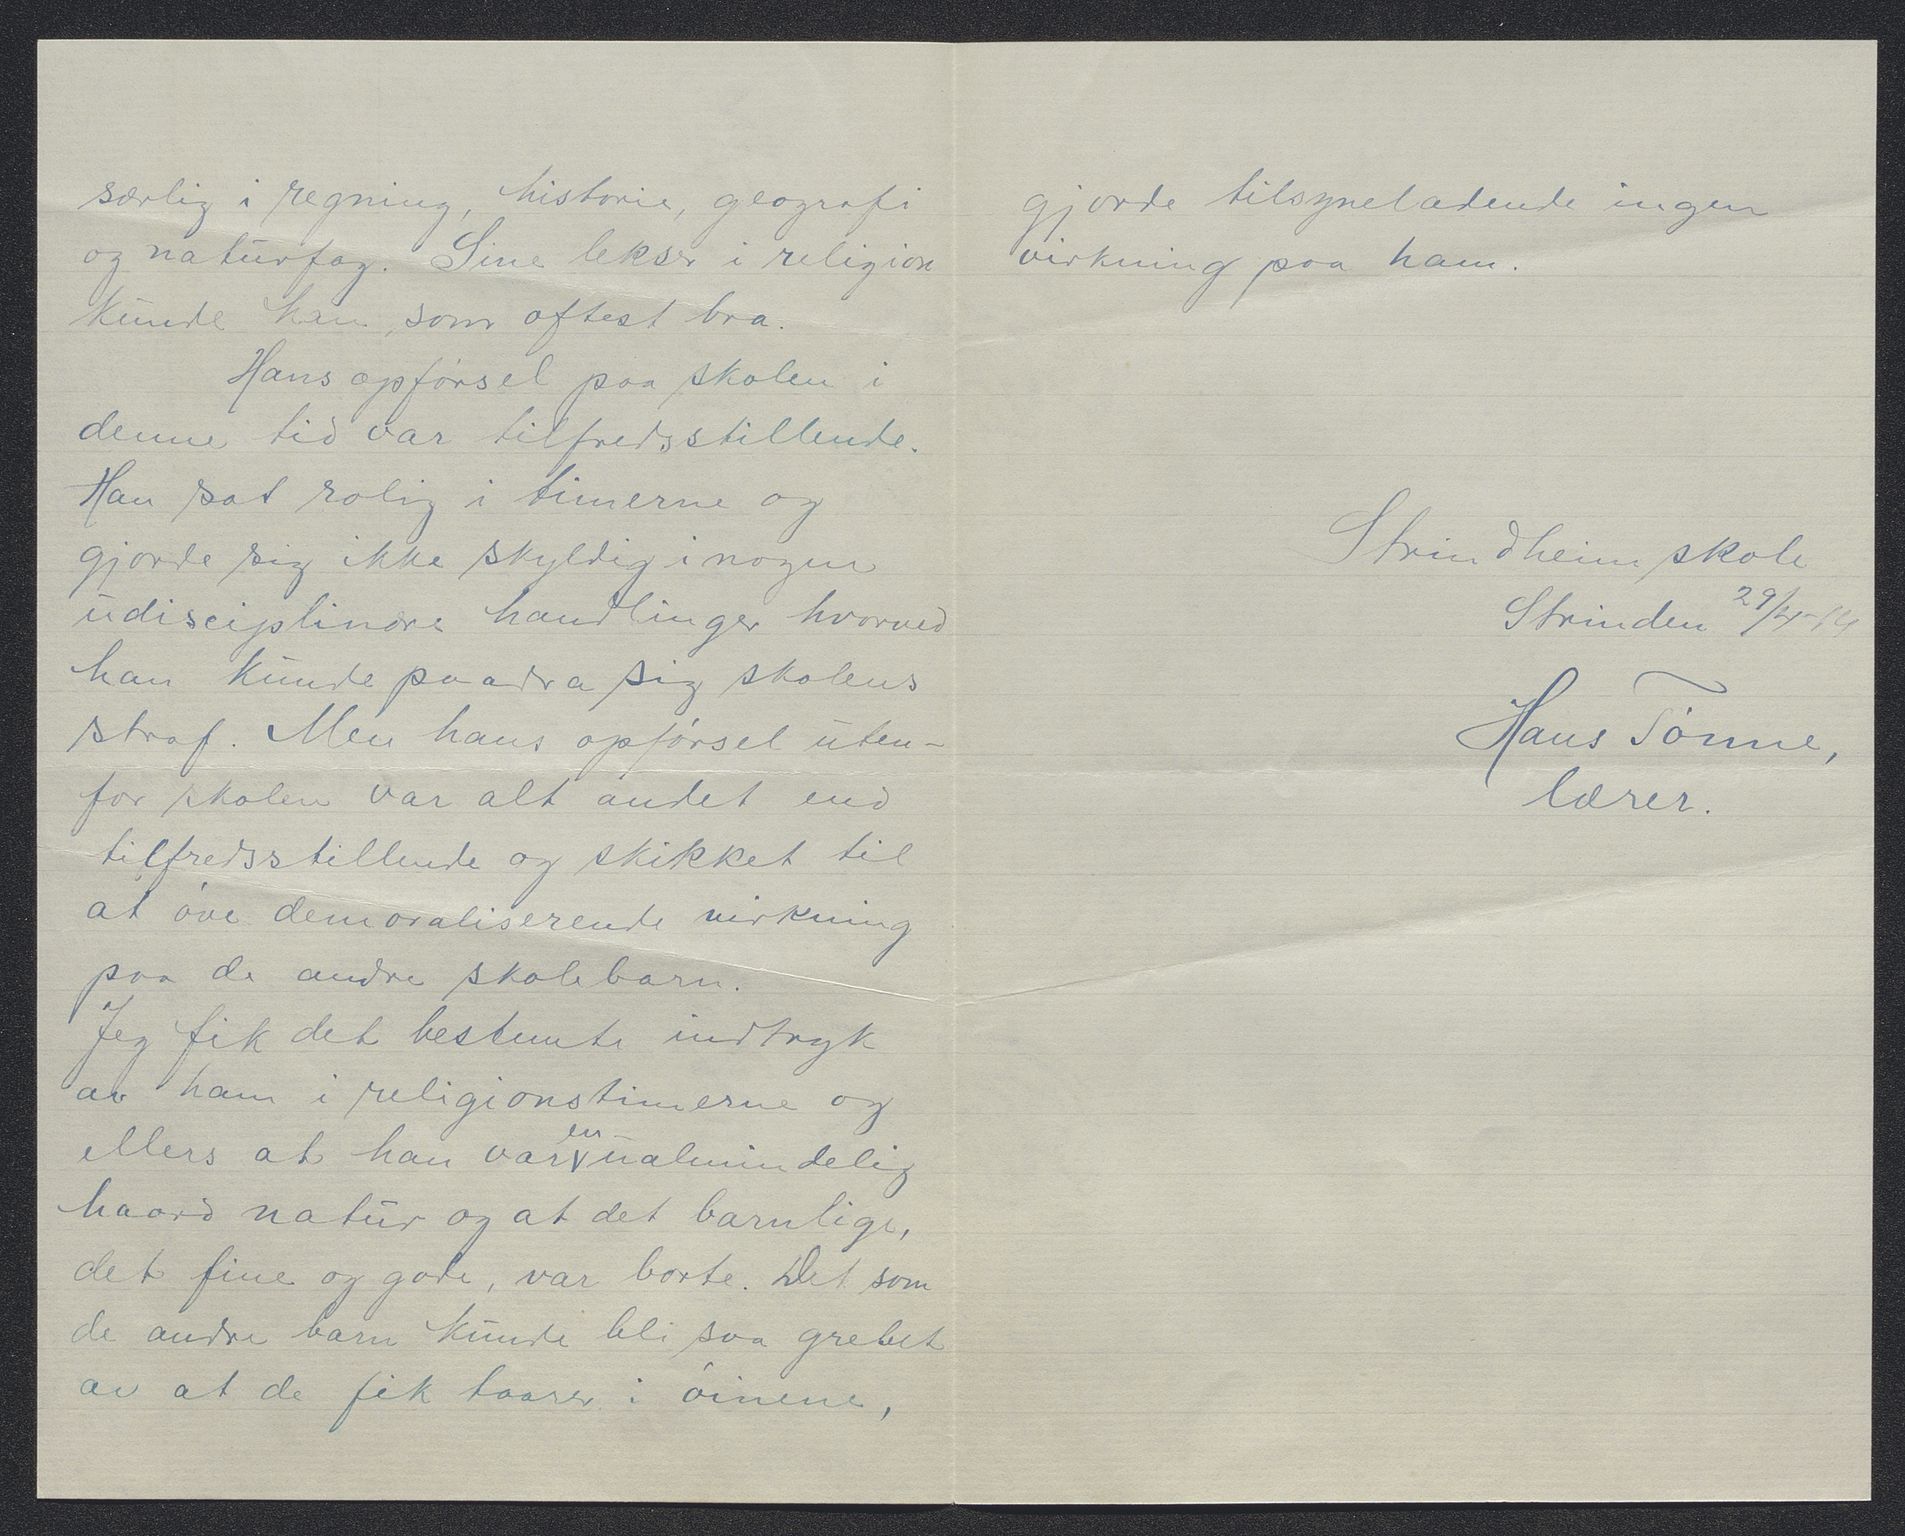 særlig i regning, historie, geografi
og naturfag. Sine lekser i religion
kunde han som oftest bra.
Hans opførsel paa skolen i
denne tid var tilfredsstillende.
Han sat rolig i timerne og
gjorde sig ikke skyldig i nogen
udisciplinære handlinger hvorved
han kunde paadra sig skolens
straf. Men hans opførsel uten-
for skolen var alt andet end
tilfredsstillende og skikket til
at øve demoraliserende virkning
paa de andre skolebarn.
Jeg fik det bestemte indtryk
av ham i religionstimerne og
ellers at han var en ualmindelig
haard natur og at det barnlige,
det fine og gode, var borte. Det som
de andre barn kunde bli saa grebet
av at de fik taarer i øinene,
gjorde tilsyneladende ingen
virkning paa ham.
Strindheim skole
Strinden 29/4-14
Hans Tønne,
lærer.